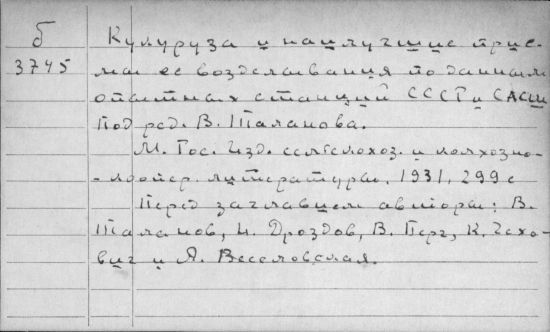 б
3745
Кукуруза и наилучшие прие-
мы ее возделывания по данным
опытных станций СССР и САСШ
Под ред. В. Таланова.
М. Гос. Изд. сельскохоз. и колхозно-
-коопер. литературы. 1931, 299 с
Перед заглавием авторы: В.
Таланов, Н. Дроздов, В. Перг, К. Чехо-
вич и Я. Веселовская.